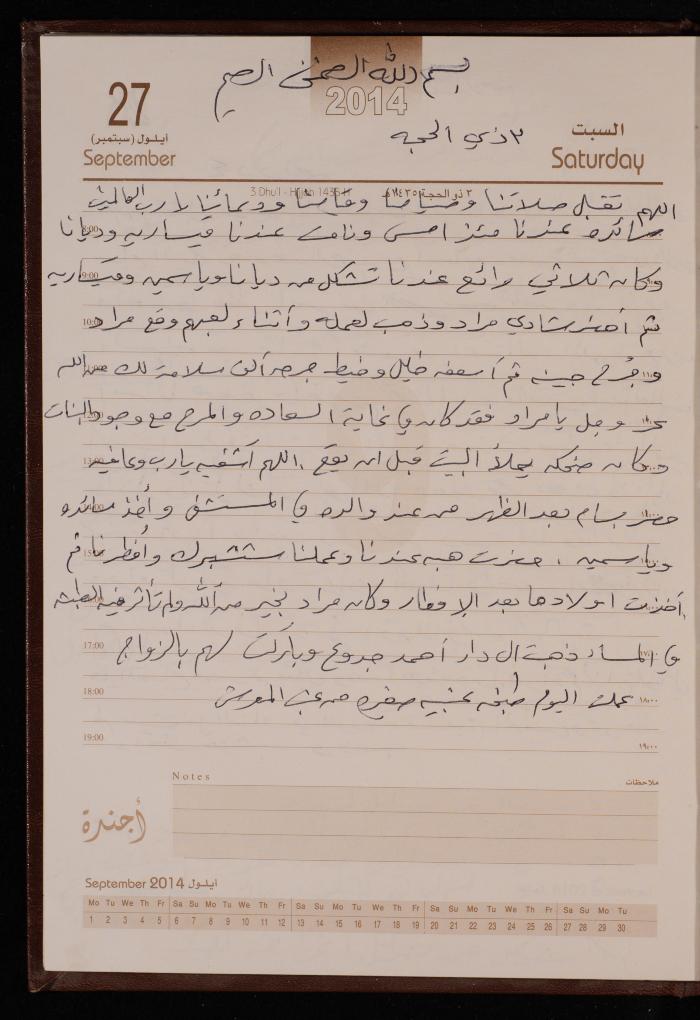 بسم الله الرحمن الرحيم
2014
27
أيلول (سبتمبر)
September
السبت
Saturday
٣ ذي الحجه
3 Dhu'l - Hijjah 1435 H ٣ ذو الحجة ١٤٣٥ هـ
اللهم تقبل صلاتنا وصيامنا وقيامنا ودعائنا يا رب العالمين
مائده عندنا منذ امس ونامت عندنا قيساريه وديانا
وكان ثلاثي رائع عندنا تشكل من ديانا وياسمين وقيساريه
ثم أحضر شادي مراد وذهب لعمله وأثناء لعبهم وقع مراد
وجُرح جبينه ثم أسعفه خليل وخيط جرحه ألف سلامة لك من الله
عز وجل يا مراد فقد كان في غاية السعاده والمرح مع وجود البنات
وكان ضحكه يملأ البيت قبل ان يقع . اللهم أشفيه يارب وعافيه
حضر بسام بعد الظهر من عند والده في المستشفى وأخذ مائده
وياسمين . حضرت هبه عندنا وعملنا ششبرك وأفطرنا ثم
أخذت اولادها بعد الإفطار وكان مراد بخير من الله ولم تأثر فيه الطبشه
في المساء ذهبت ال دار أحمد جدوع وباركت لهم بالزواج
عملت اليوم طبخه عنبيه صغيره من عنب المعرش
8:00
9:00
10:00
13:00
15:00
17:00
18:00 ١٨:٠٠
19:00 ١٩:٠٠
Notes ملاحظات
أجندة
September 2014 أيلول
Mo Tu We Th Fr Sa Su Mo Tu We Th Fr Sa Su Mo Tu We Th Fr Sa Su Mo Tu We Th Fr Sa Su Mo Tu
1 2 3 4 5 6 7 8 9 10 11 12 13 14 15 16 17 18 19 20 21 22 23 24 25 26 27 28 29 30